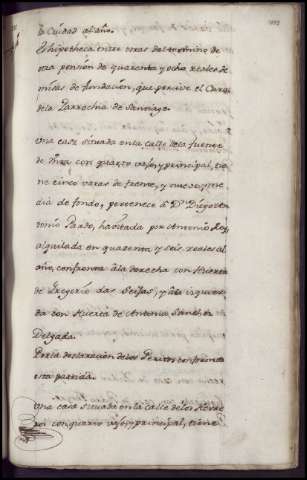 la Ciudad al año.
Es hipotheca entre otras del termino de
otra pension de quarenta y ocho reales de
misas de fundacion, que percive el Cura
de la Parrochia de Santiago.
Una casa situada en la calle de la fuente
de con quarto vajo, y principal, tie
ne cinco varas de frente, y nueve, y me
dia de fondo, pertenece á Dn. Diego An
tonio Pardo, havitada por Antonio Rey
alquilada en quarenta y seis reales al
año, confronta á la derecha con Huerta
de Gregorio das Seijas, y á la izquier
da con Huerta de Antonia Sanchez
Delgada.
Por la declaracion de los Peritos confronta
esta partida.
Una casa situada en la calle de los Herre
ros con quarto vajo, y principal, tiene